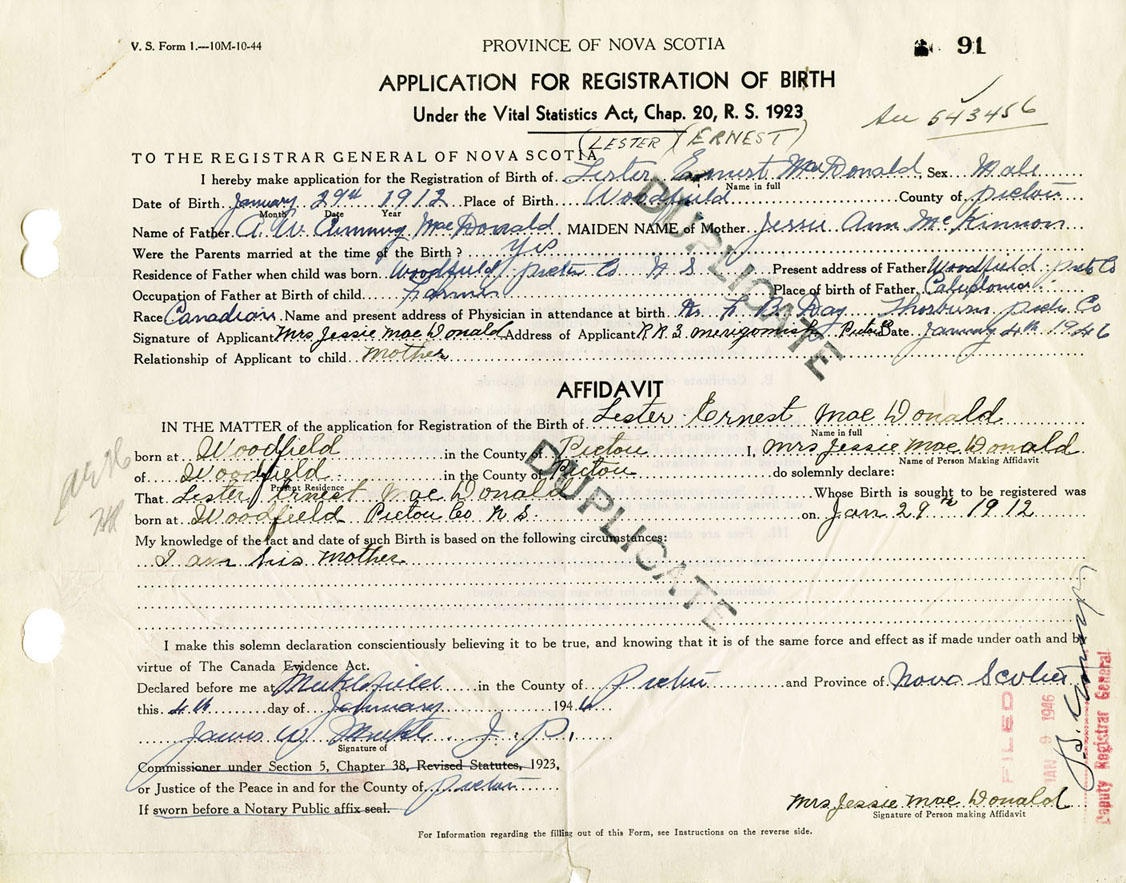 V. S. Form 1.—10M-10-44
PROVINCE OF NOVA SCOTIA
91
APPLICATION FOR REGISTRATION OF BIRTH
Under the Vital Statistics Act, Chap. 20, R. S. 1923
543456
(LESTER) (ERNEST)
TO THE REGISTRAR GENERAL OF NOVA SCOTIA
I hereby make application for the Registration of Birth of Lester Ernest MacDonald Sex Male
Name in full
Date of Birth January 29th 1912 Place of Birth Woodfield County of Pictou
Month Date Year
Name of Father A. W. Cumming MacDonald MAIDEN NAME of Mother Jessie Ann McKinnon
Were the Parents married at the time of the Birth? Yes
Residence of Father when child was born Woodfield Pictou Co N S Present address of Father Woodfield Pict Co
Occupation of Father at Birth of child Farmer Place of birth of Father Caledonia
Race Canadian Name and present address of Physician in attendance at birth Day Thorburn Pictou Co
Signature of Applicant Mrs Jessie MacDonald Address of Applicant R R 3 Merigomish Pictou Date January 4th 1946
Relationship of Applicant to child mother
DUPLICATE
AFFIDAVIT
IN THE MATTER of the application for Registration of the Birth of Lester Ernest MacDonald
Name in full
born at Woodfield in the County Pictou I, Mrs Jessie MacDonald
Name of Person Making Affidavit
of Woodfield in the County of Pictou do solemnly declare:
Present Residence
That Lester Ernest MacDonald Whose Birth is sought to be registered was
born at Woodfield Pictou Co N S. on Jan 29th 1912
My knowledge of the fact and date of such Birth is based on the following circumstances:
I am his mother
DUPLICATE
I make this solemn declaration conscientiously believing it to be true, and knowing that it is of the same force and effect as if made under oath and by
virtue of The Canada Evidence Act.
Declared before me at in the County of Pictou and Province of Nova Scotia
this 4th day of January 1946
James W J. P.
Signature of
Commissioner under Section 5, Chapter 38, Revised Statutes, 1923,
or Justice of the Peace in and for the County of Pictou
If sworn before a Notary Public affix seal.
Mrs Jessie MacDonald
Signature of Person making Affidavit
FILED
JAN 9 1946
Deputy Registrar General
For Information regarding the filling out of this Form, see Instructions on the reverse side.